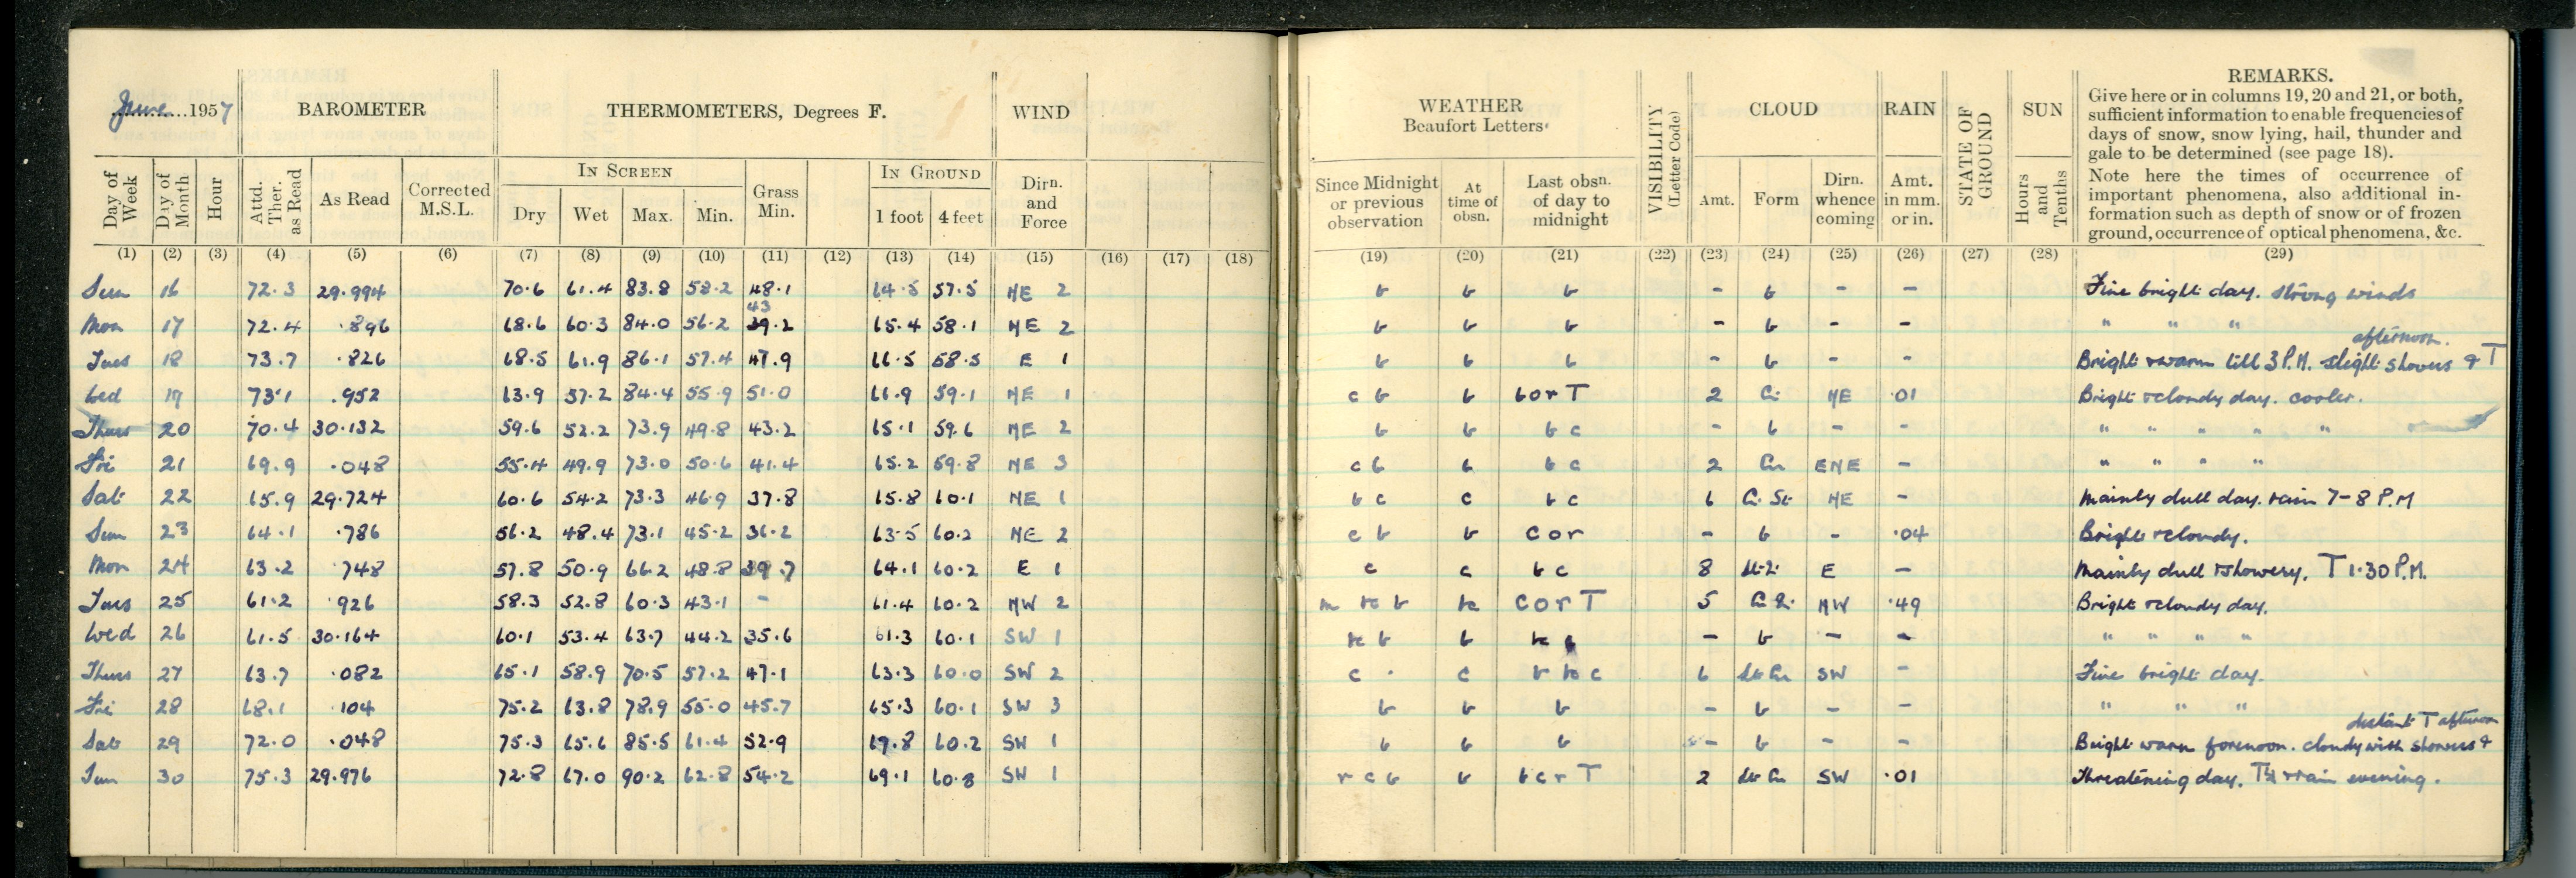 June 1957 BAROMETER THERMOMETERS, Degrees F. WIND
Day of Week Day of Month Hour Attd. Ther. as Read As Read Corrected M.S.L. IN SCREEN Dry Wet Max. Min. Grass Min. IN GROUND 1 foot 4 feet Dirn. and Force
(1) (2) (3) (4) (5) (6) (7) (8) (9) (10) (11) (12) (13) (14) (15) (16) (17) (18)
Sun 16 72.3 29.994 70.6 61.4 83.8 58.2 48.1 64.5 57.5 NE 2
43
Mon 17 72.4 .896 68.6 60.3 84.0 56.2 39.2 65.4 58.1 NE 2
Tues 18 73.7 .826 68.5 61.9 86.1 57.4 47.9 66.5 58.5 E 1
Wed 19 73.1 .952 63.9 57.2 84.4 55.9 51.0 66.9 59.1 NE 1
Thurs 20 70.4 30.132 59.6 52.2 73.9 49.8 43.2 65.1 59.6 NE 2
Fri 21 69.9 .048 55.4 49.9 73.0 50.6 41.4 65.2 59.8 NE 3
Sat 22 65.9 29.724 60.6 54.2 73.3 46.9 37.8 65.8 60.1 NE 1
Sun 23 64.1 .786 56.2 48.4 73.1 45.2 36.2 63.5 60.2 NE 2
Mon 24 63.2 .748 57.8 50.9 66.2 48.8 39.7 64.1 60.2 E 1
Tues 25 61.2 .926 58.3 52.8 60.3 43.1 - 61.4 60.2 NW 2
Wed 26 61.5 30.164 60.1 53.4 63.7 44.2 35.6 61.3 60.1 SW 1
Thurs 27 63.7 .082 65.1 58.9 70.5 57.2 47.1 63.3 60.0 SW 2
Fri 28 68.1 .104 75.2 63.8 78.9 55.0 45.7 65.3 60.1 SW 3
Sat 29 72.0 .048 75.3 65.6 85.5 61.4 52.9 67.8 60.2 SW 1
Sun 30 75.3 29.976 72.8 67.0 90.2 62.8 54.2 69.1 60.8 SW 1
WEATHER Beaufort Letters VISIBILITY (Letter Code) CLOUD RAIN STATE OF GROUND SUN REMARKS.
Since Midnight or previous observation At time of obsn. Last obsn. of day to midnight Amt. Form Dirn. whence coming Amt. in mm. or in. Hours and Tenths
Give here or in columns 19, 20 and 21, or both,
sufficient information to enable frequencies of
days of snow, snow lying, hail, thunder and
gale to be determined (see page 18).
Note here the times of occurrence of
important phenomena, also additional in-
formation such as depth of snow or of frozen
ground, occurrence of optical phenomena, &c.
(19) (20) (21) (22) (23) (24) (25) (26) (27) (28) (29)
b b b - b - - Fine bright day. Strong winds
b b b - b - - " " "
afternoon.
b b b - b - - Bright & warm till 3 P.M. slight showers & T
c b b b o r T 2 Cu NE .01 Bright & cloudy day. cooler.
b b b c - b - - " " " " "
c b b b c 2 Cu ENE - " " " "
b c c b c 6 Cu. St NE - Mainly dull day. rain 7-8 P.M
c b b c o r - b - .04 Bright & cloudy.
c c b c 8 E - Mainly dull & showery. T 1.30 P.M.
c o r T 5 NW .49 Bright & cloudy day.
b - b - - " " " "
c c 6 St Cu SW - Fine bright day.
b b b - b - - " " "
distant T afternoon
b b b - b - - Bright warm forenoon. cloudy with showers &
r c b b b c r T 2 St Cu SW .01 Threatening day. & rain evening.